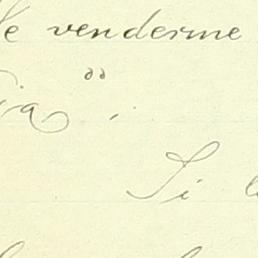 de venderme
ia ;
Si